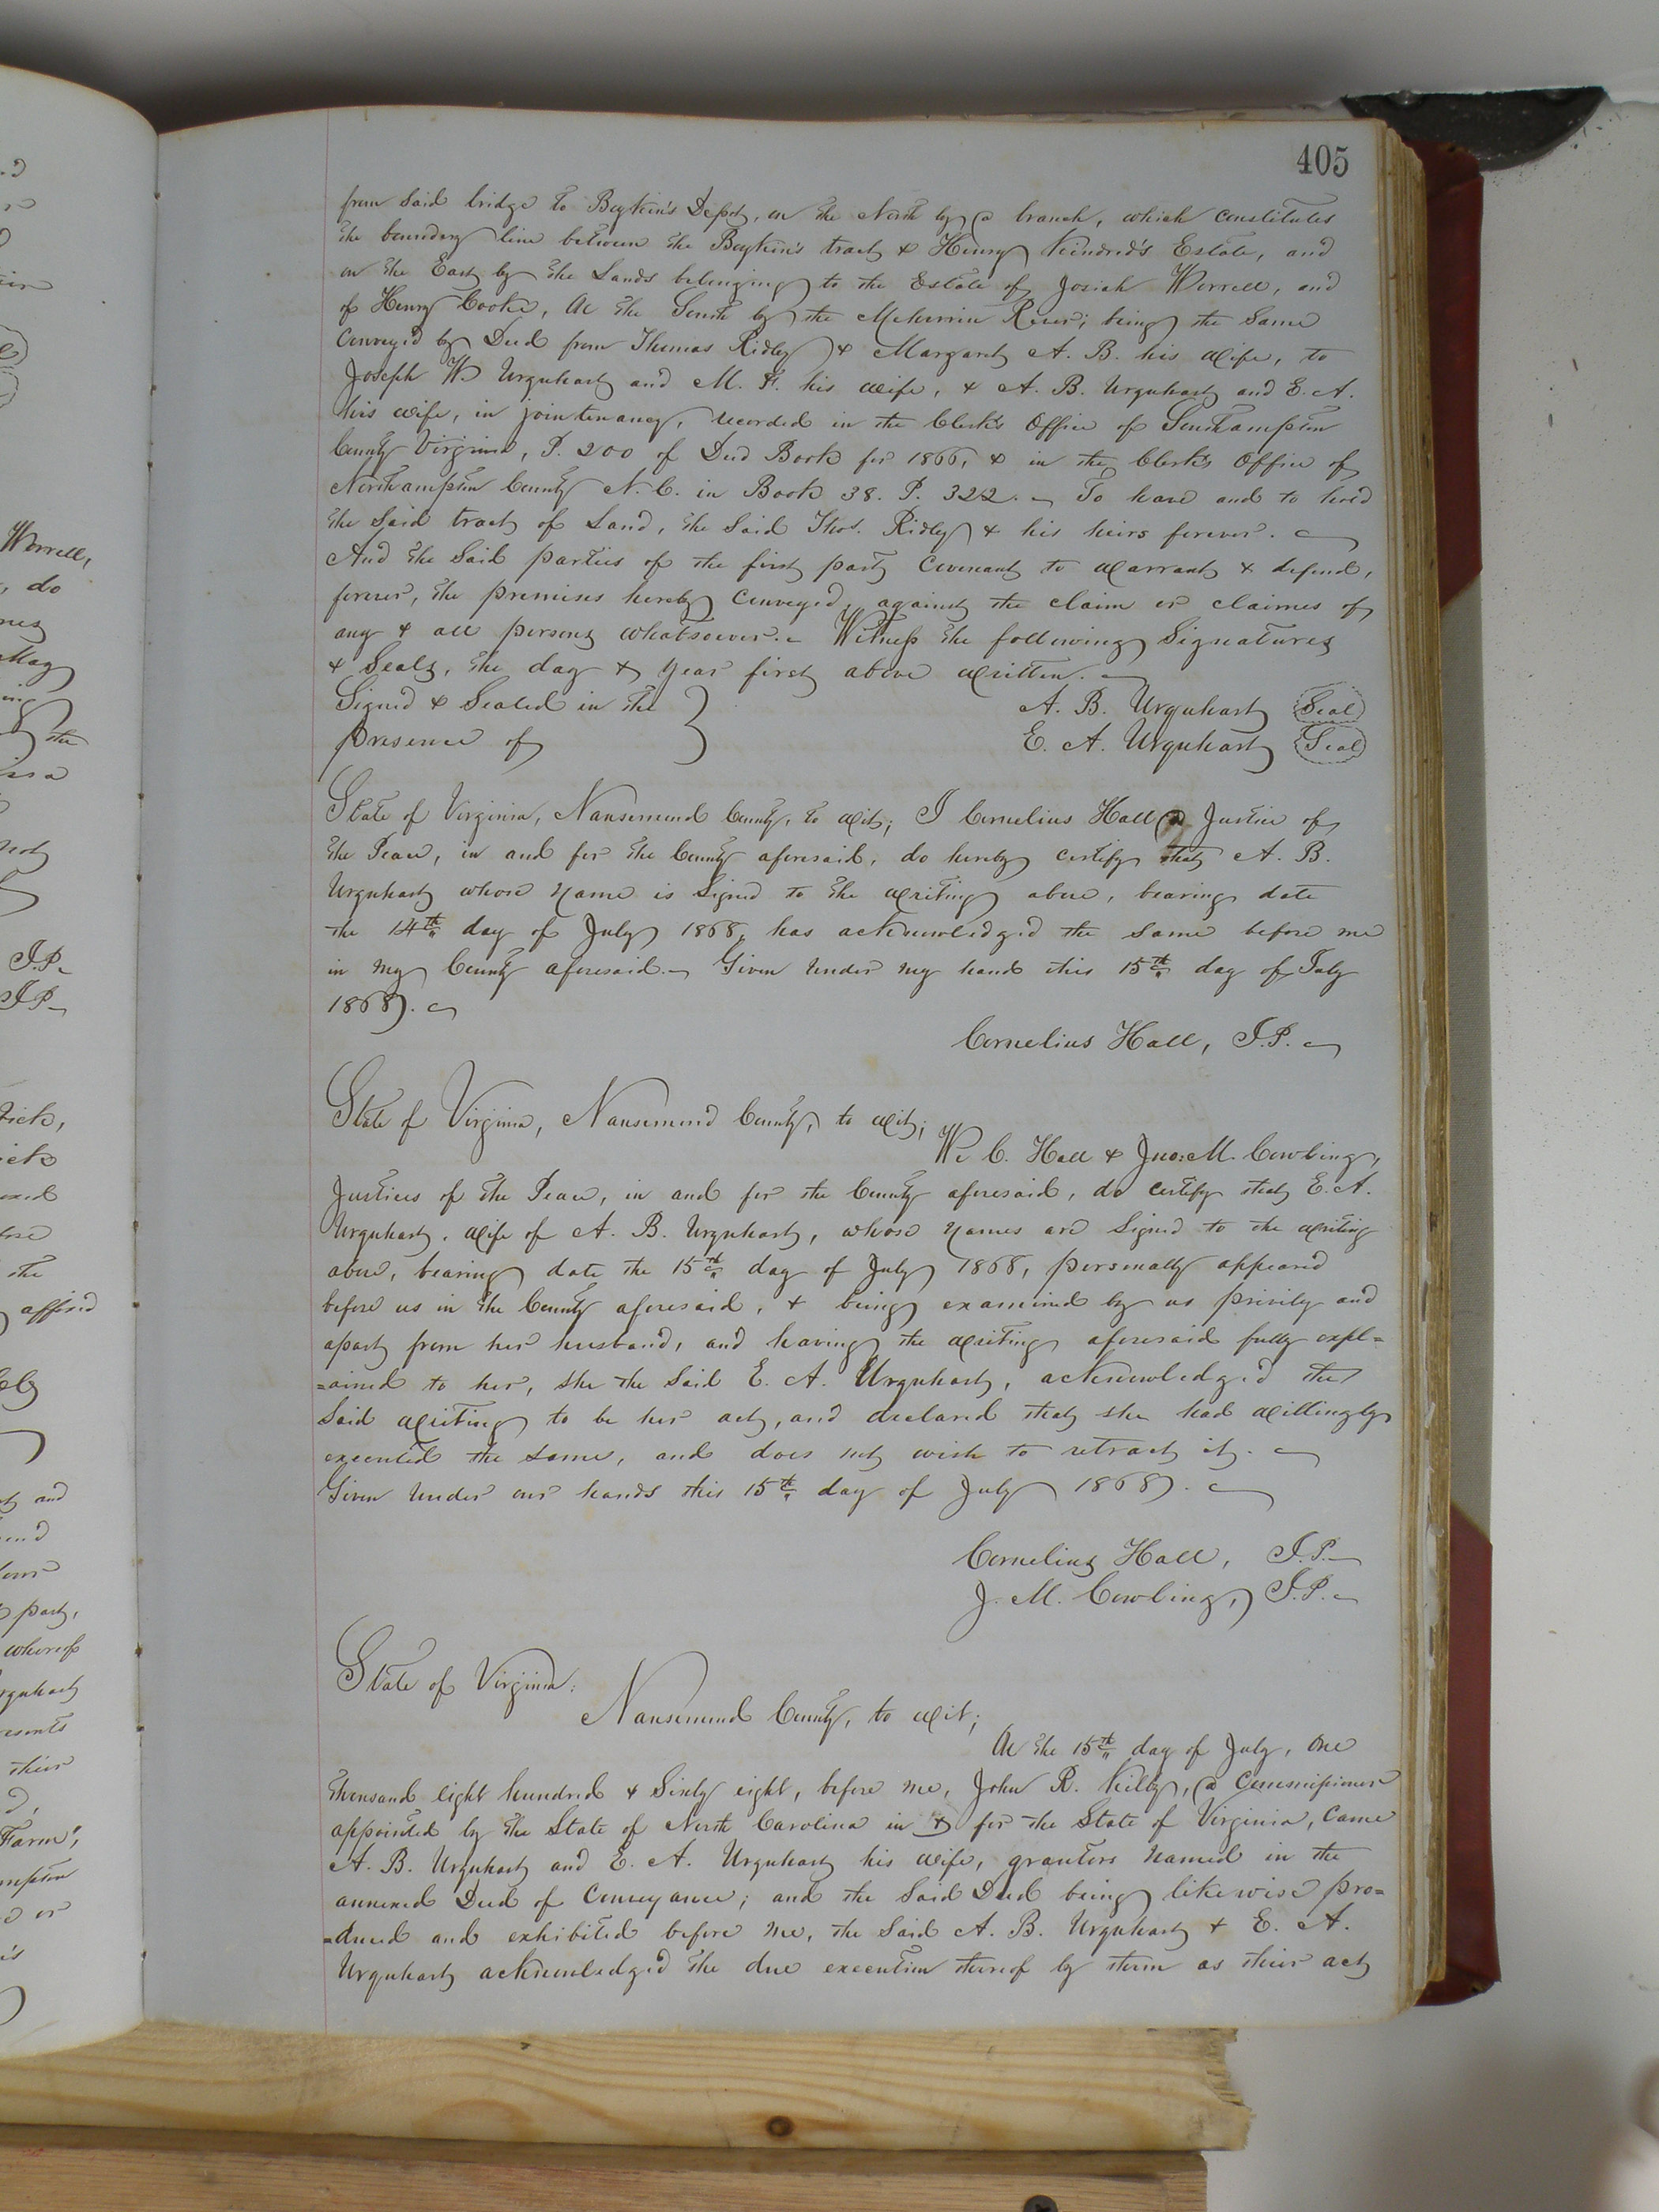 405
from said bridge to Boykin's Depot, on the North by a branch, which constitutes
the boundary line between the Boykin's tract & Henry Kindred's Estate, and
on the East by the Lands belonging to the Estate of Josiah Worrell, and
of Henry Cooke, On the South by the Meherrin River; being the same
conveyed by Deed from Thomas Ridley & Margaret A. B. his wife, to
Joseph W. Urquhart and M. F. his wife, & A. B. Urquhart and E. A.
his wife, in jointenancy, recorded in the Clerk's Office of Southampton
County Virginia, P. 200 of Deed Book for 1866, & in the Clerk's Office of
Northampton County N. C. in Book 38. P. 322. To have and to hold
the said tract of Land, the said Thos. Ridley & his heirs forever.
And the said parties of the first part covenant to warrant & defend,
forever, the premises hereby conveyed, against the claim or claims of
any & all persons whatsoever. Witness the following Signatures
& Seals, the day & year first above written.
Signed & Sealed in the } A. B. Urquhart (Seal)
presence of } E. A. Urquhart (Seal)
State of Virginia, Nansemond County, to wit; I Cornelius Hall a Justice of
the Peace, in and for the County aforesaid, do hereby certify that A. B.
Urquhart whose name is signed to the writing above, bearing date
the 14th day of July 1868, has acknowledged the same before me
in my County aforesaid. Given under my hand this 15th day of July
1868.
Cornelius Hall, J.P.
State of Virginia, Nansemond County, to wit;
We C. Hall & Jno: M. Cowling,
Justices of the Peace, in and for the County aforesaid, do certify that E. A.
Urquhart, wife of A. B. Urquhart, whose names are signed to the writing
above, bearing date the 15th day of July 1868, personally appeared
before us in the County aforesaid, & being examined by us privily and
apart from her husband, and having the writing aforesaid fully expl=
=ained to her, she the said E. A. Urquhart, acknowledged the
said writing to be her act, and declared that she had willingly
executed the same, and does not wish to retract it.
Given under our hands this 15th day of July 1868.
Cornelius Hall, J.P.
J. M. Cowling, J.P.
State of Virginia:
Nansemond County, to wit;
On the 15th day of July, One
thousand eight hundred & Sixty eight, before me, John R. Kilby, a Commissioner
appointed by the State of North Carolina in & for the State of Virginia, came
A. B. Urquhart and E. A. Urquhart his wife, grantors named in the
annexed Deed of Conveyance; and the said Deed being likewise pro=
=duced and exhibited before me, the said A. B. Urquhart & E. A.
Urquhart acknowledged the due execution thereof by them as their act